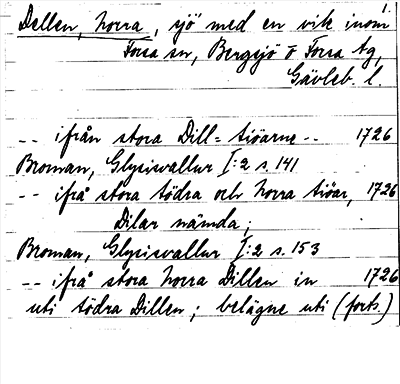 Dellen, norra, sjö med en vik inom
Forsa sn, Bergsjö o Forsa tg,
Gävleb. l.
-- ifrån stora Dill= siöarne -- 1726
Broman, Glysisvallur I:2 s. 141
-- ifrå stora södra och norra siöar, 1726
Dilar nämda;
Broman, Glysisvallur I:2 s. 153
-- ifrå stora norra Dillen in 1726
uti södra Dillen; belägne uti (forts.)